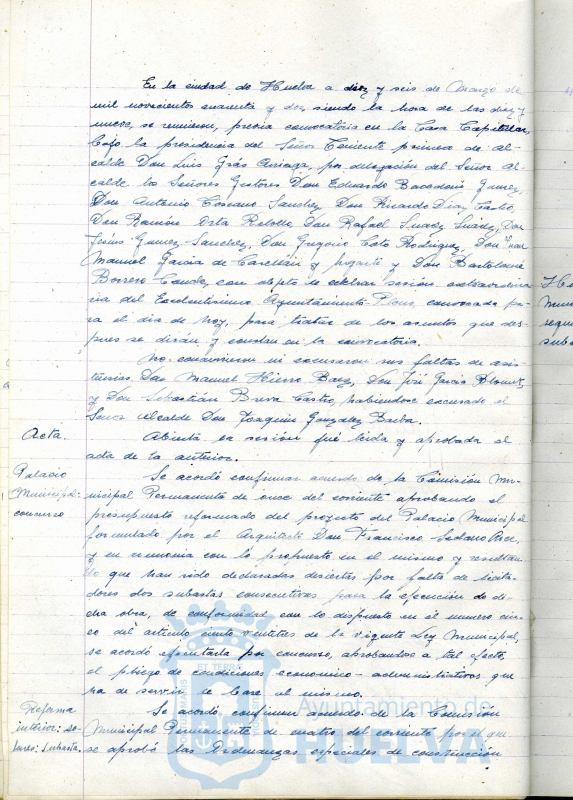 En la ciudad de Huelva a diez y seis de Marzo de
mil novecientos cuarenta y dos, siendo la hora de las diez y
nueve, se reunieron, previa convocatoria en la Casa Capitular,
bajo la presidencia del Señor Teniente primero de Al-
calde Don Luis Grás Arriaga, por delegación del Señor Al-
calde, los Señores Gestores Don Eduardo Gomez,
Don Antonio Sanchez, Don Ricardo Diaz Castro,
Don Ramón Orta Rebollo, Don Rafael Suarez Suarez, Don
Jesús Gomez Sanchez, Don Gregorio Coto Rodriguez, Don Juan
Manuel Garcia de y Don Bartolomé
Borrero Conde, con objeto de celebrar sesión extraordina-
ria del Excelentísimo Ayuntamiento Pleno, convocada pa-
ra el dia de hoy, para tratar de los asuntos que des-
pues se dirán y constan en la convocatoria.
No concurrieron ni excusaron sus faltas de asis-
tencias, Don Manuel Hierro Baez, Don José Garcia
y Don Sebastián Castro, habiendose excusado el
Señor Alcalde Don Joaquin Gonzalez Barba.
Acta.
Abierta la sesión fué leida y aprobada el
acta de la anterior.
Palacio
Municipal:
concurso
Se acordó confirmar acuerdo de la Comisión Mu-
nicipal Permanente de once del corriente aprobando el
presupuesto reformado del proyecto del Palacio Municipal
formulado por el Arquitecto Don Francisco Sedano Arce,
y en armonia con lo propuesto en el mismo y resultan-
do que han sido declaradas desiertas por falta de licita-
dores dos subastas consecutivas para la ejecución de di-
cha obra, de conformidad con lo dispuesto en el numero cin-
co del articulo ciento veintitres de la vigente Ley Municipal,
se acordó ejecutarla por concurso, aprobandose a tal efecto,
el pliego de condiciones economico-administrativas que
ha de servir de base al mismo.
Reforma
interior: so-
lares: Subasta.
Se acordó confirmar acuerdo de la Comisión
Municipal Permanente de cuatro del corriente por el que
se aprobó las Ordenanzas especiales de construcción
Ayuntamiento de
HUELVA